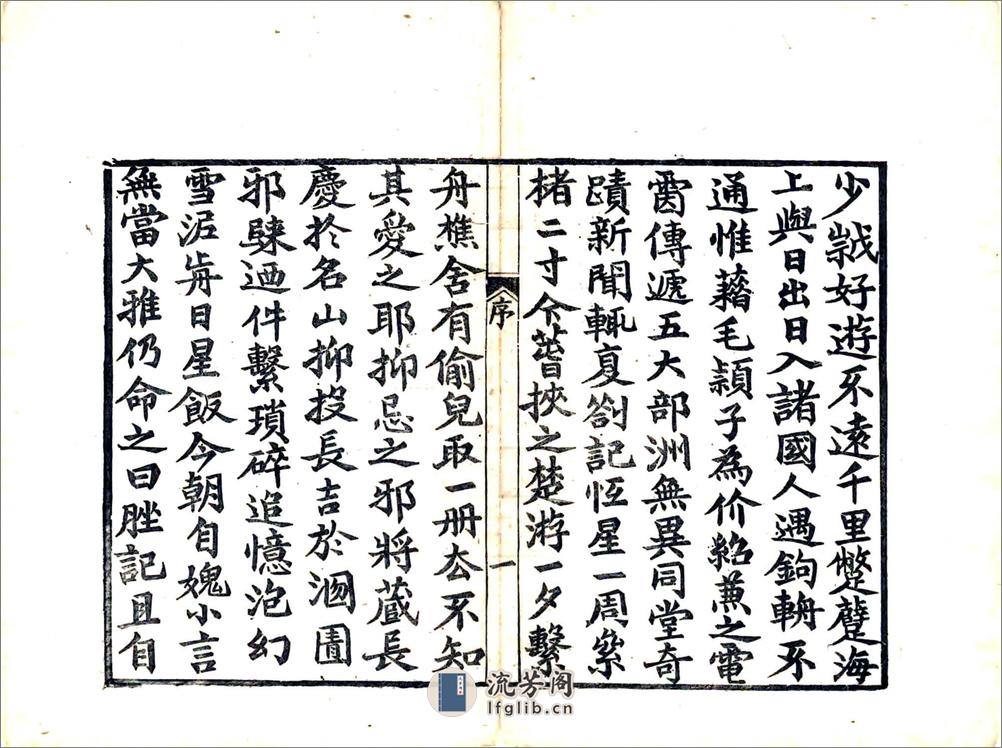 少誠好遊不遠千里蹩躠海
上與日出日入諸國人遇鉤輈不
通惟藉毛穎子為价紹蒹之電
啚傳遞五大部洲無異同堂奇
蹟新聞輒夏劄記恆星一周絫
楮二寸个簪挾之楚游一夕繫
序
一
舟樵舍有偷兒取一冊厺不知
其愛之耶抑忌之邪將蔵長
慶於名山抑投長吉於溷圊
邪騄迺件繫瑣碎追憶泡幻
雪泥歬日星飯今朝自媿小言
無當大雅仍命之曰脞記且自
流芳阁
lfglib.cn